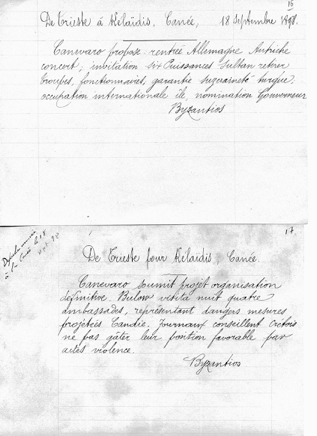 15
De Trieste à Kélaïdis, Canée, 18 Septembre 1898.
Canevaro propose rentrée Allemagne Autriche
concert, invitation six Puissances Sultan retirer
troupes, fonctionnaires, garantie suzeraineté turque,
occupation internationale île, nomination Gouverneur
Byzantios
17.
De Trieste pour Kélaïdis, Canée.
Canevaro soumit projet organisation
définitive. Bulow visita nuit quatre
ambassades, représentant dangers mesures
projetées Candie. Journaux conseillent crétois
ne pas gâter leur position favorable par
actes violence.
Byzantios